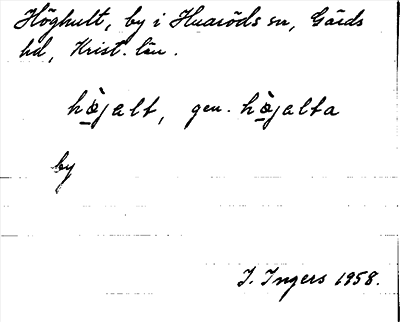 Höghult, by i Huaröds sn, Gärds
hd, Krist. län.
hæ̀jalt, gen. hæ̀jalta
by
I. Ingers 1958.